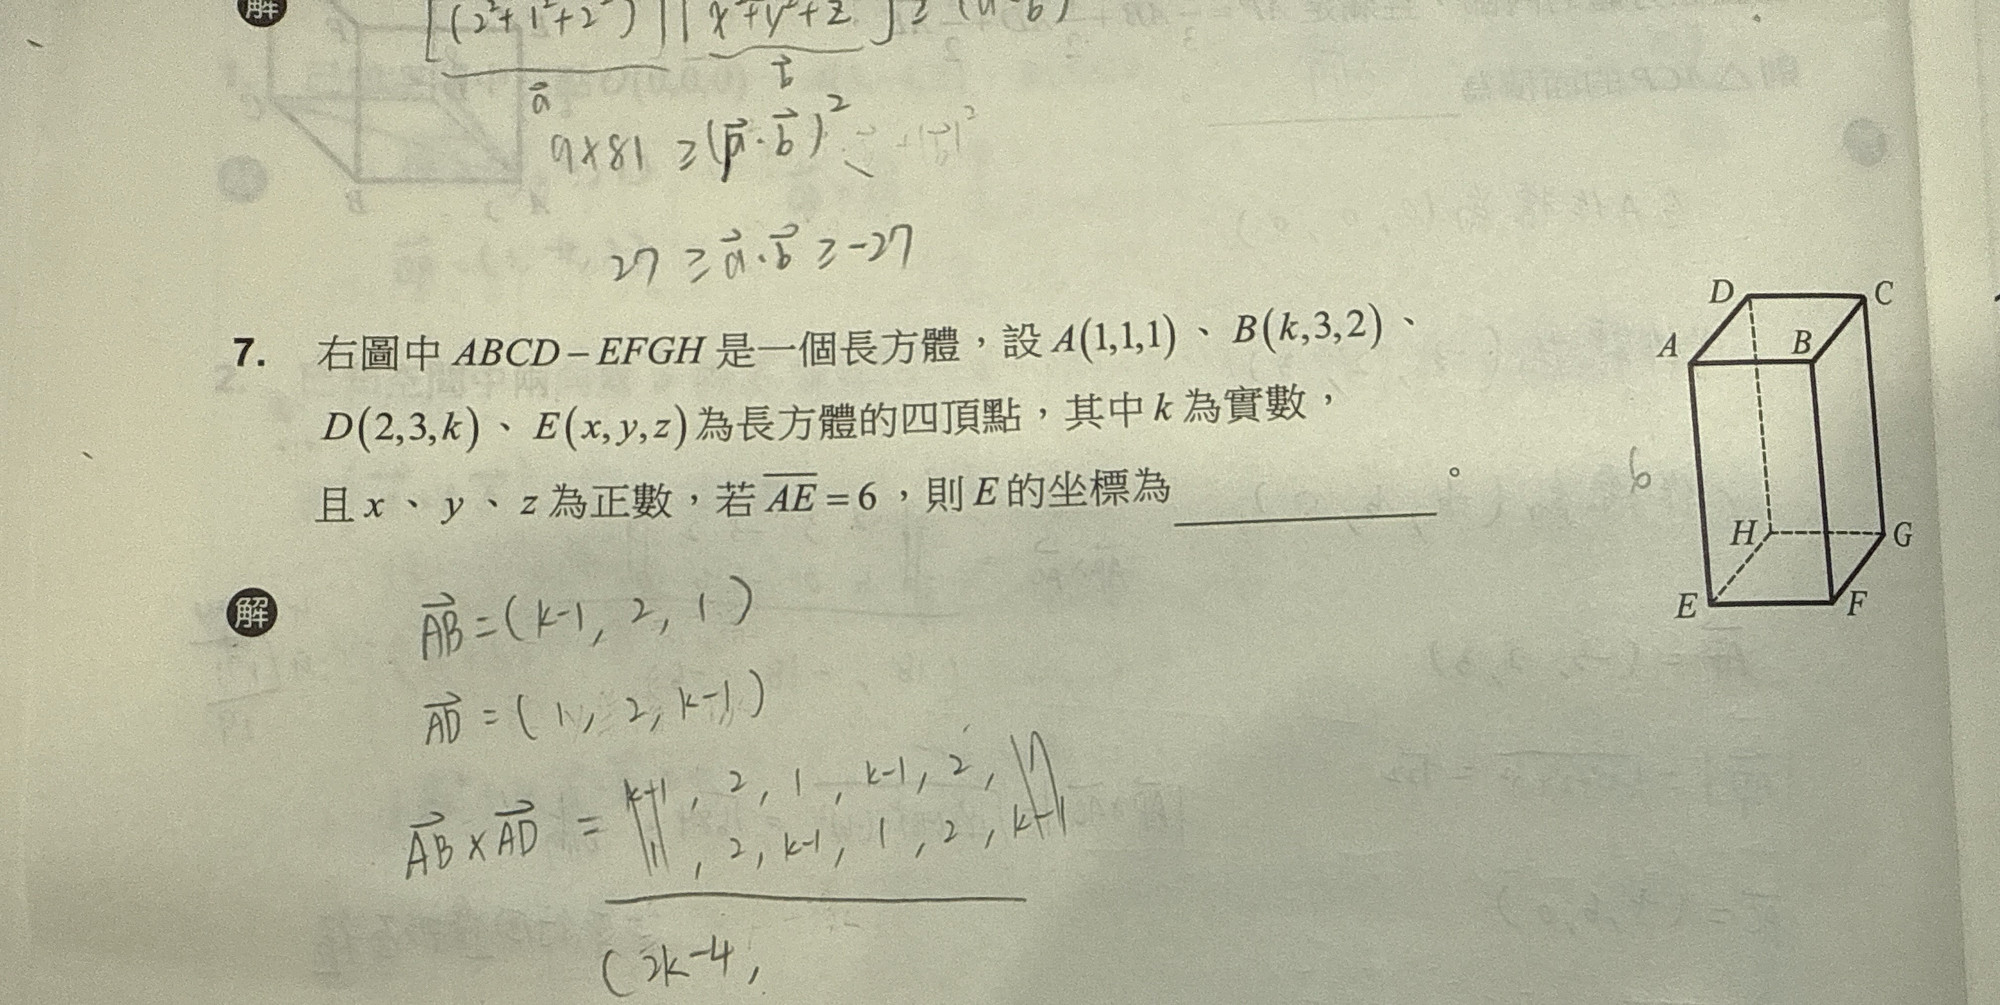 解
[(2²+1²+2²)][x²+y²+z²] ≥ (a·b)
a⃗ b⃗
9×81 ≥ (a⃗·b⃗)²
27 ≥ a⃗·b⃗ ≥ -27
7. 右圖中 ABCD－EFGH 是一個長方體，設 A(1,1,1)、B(k,3,2)、
D(2,3,k)、E(x,y,z)為長方體的四頂點，其中 k 為實數，
且 x、y、z 為正數，若 A̅E̅ = 6，則 E 的坐標為________。
D C
A B
6
H G
E F
解 A⃗B⃗ = (k-1, 2, 1)
A⃗D⃗ = (1, 2, k-1)
A⃗B⃗ × A⃗D⃗ = k-1, 2, 1, k-1, 2, 1
1, 2, k-1, 1, 2, k-1
(2k-4,